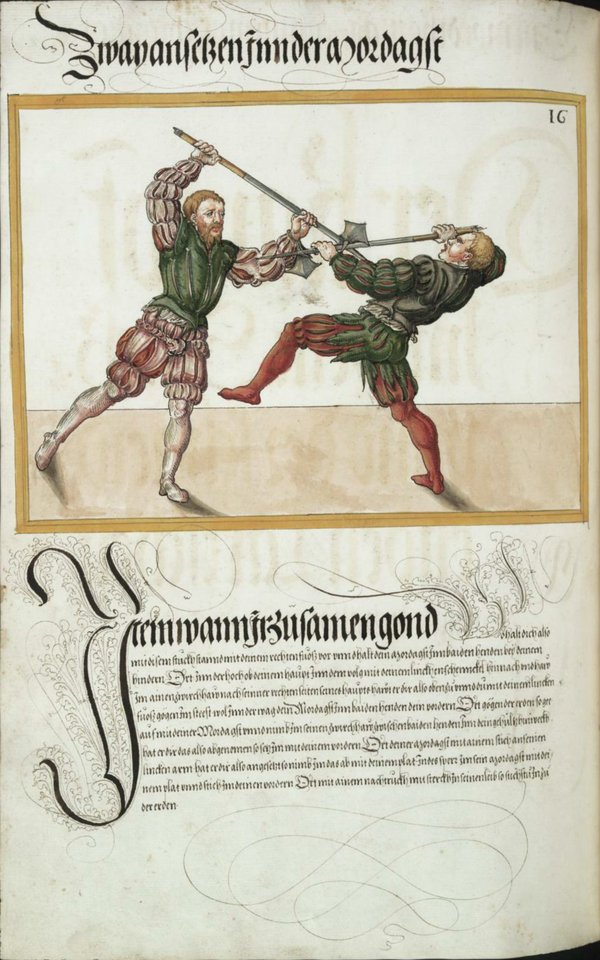 Zway ansetzen Inn der Mordagst
16
Item wann Ir zusamen gond
So halt dich also
mit disem stuckh stannd mit deinem rechten fuoß vor vnnd halt dein Mordagst Inn baiden henden vor deinem
hindern Ort Inn der hoch ob deinem haupt Inn dem volg mit deinem linckhen schennckel hinnach
Im ain nach seiner rechten seiten seines haupts hawt er dir also oben zu vnnd du mit deinem linckhen
fuoß gogen Im steest vnd Inn der wag dein Mordagst Inn baiden henden dein vordern Ort gögen der erden so gee
auf mit deiner Mordagst vnnd nimb Im seinen zwischen baiden henden Inn dein
hat er dir das also abgenomen so setz Im mit deinem vordern Ort deiner Mordagst mit ainem stich an seinen
linckhen arm hat er dir also angesetzt so nimb Im das ab mit deinem plat Inndes sperr Im sein Mordagst mit dei
nem plat vnnd stich Im deinen vordern Ort mit ainem nachtruckh mit sterckh In seinen leib so stichstu In zu
der erden